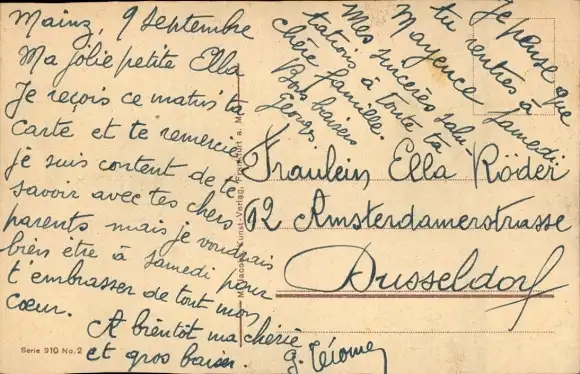 Mainz, 9 Septembre
Ma jolie petite Ella
Je reçois ce matin ta
carte et te remercie
je suis content de te
savoir avec tes chers
parents, mais je voudrais
bien être à samedi pour
t'embrasser de tout mon
cœur.
A bientôt ma chérie
et gros baiser.
Je pense que
tu rentres à
Mayence samedi.
Mes sincères salu
tations à toute ta
chère famille.
Bons baisers
Georges
Fraulein Ella Röder
62 Amsterdamerstrasse
Dusseldorf
Kunst-Verlag, Frankfurt a. M.
Serie 910 No. 2